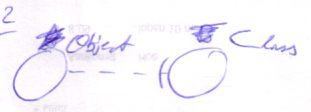 2
Object Class